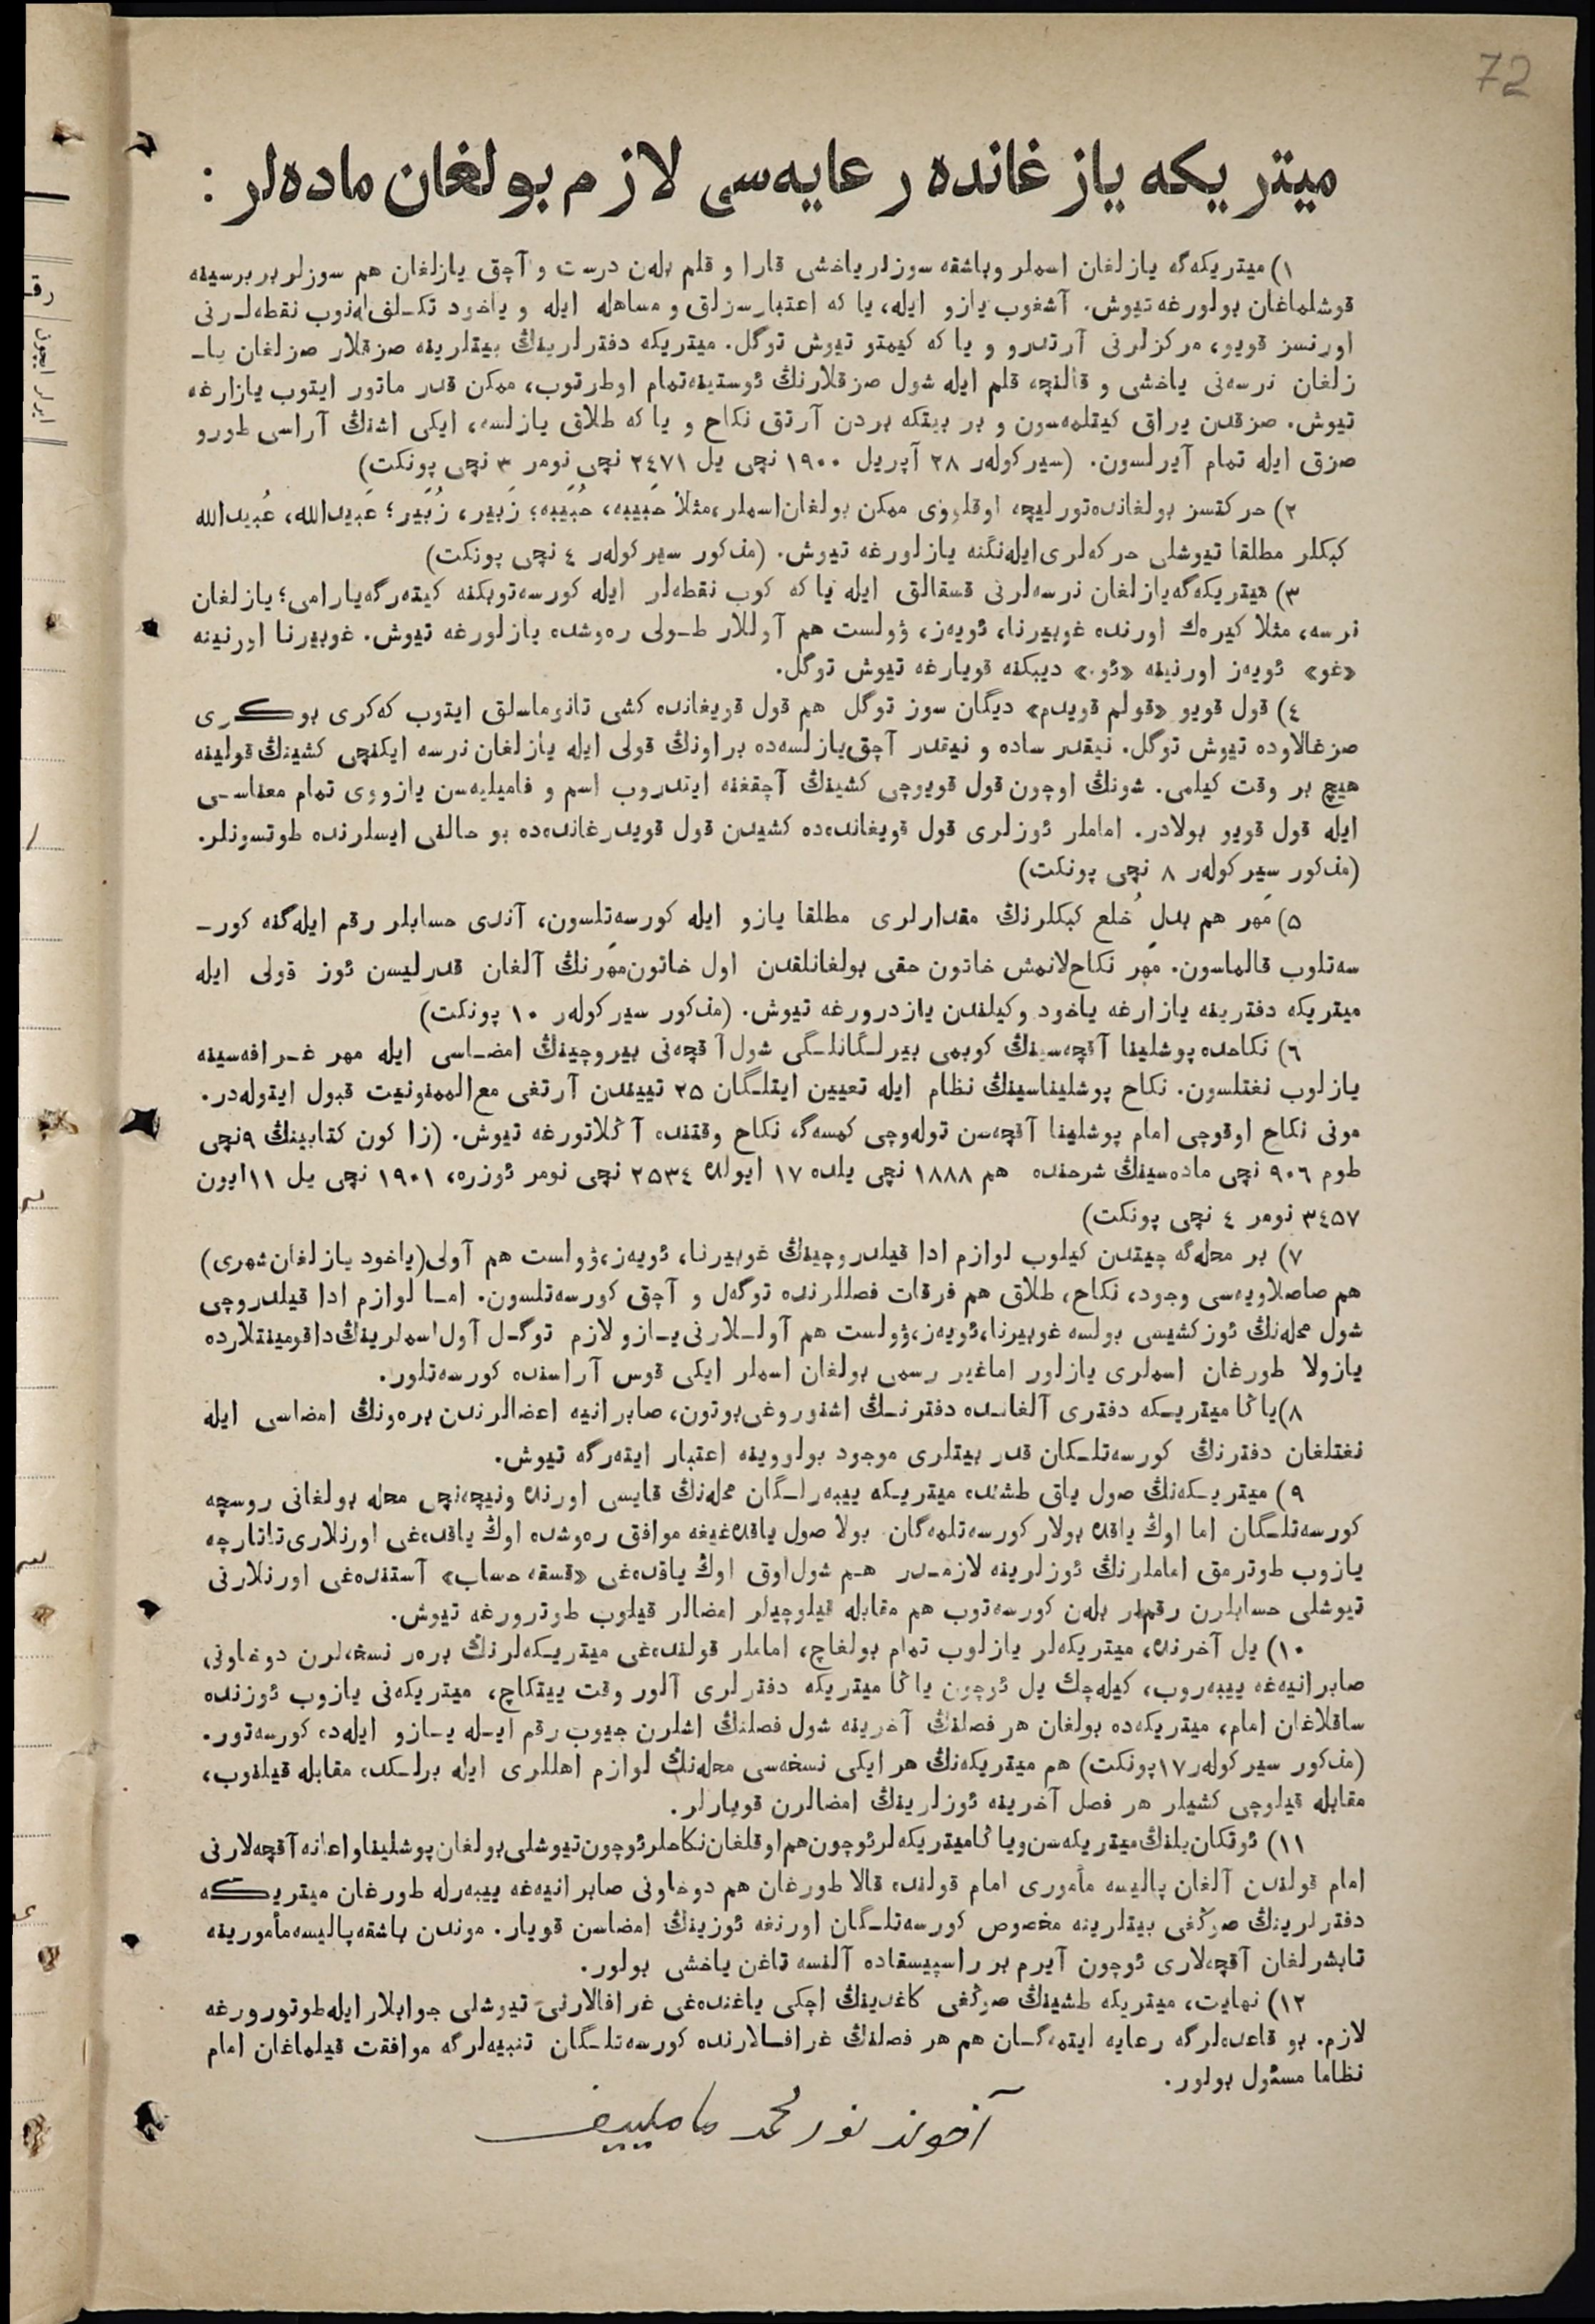 72
ميتريكه يازغانده رعايه‌سی لازم بولغان ماده‌لر :
١) ميتريكه‌گه يازلغان اسملر وباشقه سوزلر ياخشی قارا و قلم بله‌ن درست و آچق يازلغان هم سوزلر بربرسينه
قوشلماغان بولورغه تيوش. آشغوب يازو ايله، يا كه اعتبارسزلق و مساهله ايله و ياخود تكـلف‌له‌نوب نقطه‌لـرنی
اورنسز قويو، مركزلرنی آرتدرو و يا كه كيمتو تيوش توگل. ميتريكه دفترلرينڭ بيتلرينه صزقلار صزلغان يا–
زلغان نرسه‌نی ياخشی و قالنچه قلم ايله شول صزقلارنڭ ئوستينه‌تمام اوطرتوب، ممكن قدر ماتور ايتوب يازارغه
تيوش. صزقدن يراق كيتلمه‌سون و بر بيتكه بردن آرتق نكاح و يا كه طلاق يازلسه، ايكی اشنڭ آراسی طورو
صزق ايله تمام آيرلسون. (سيركوله‌ر ٢٨ آپريل ١٩٠٠ نچی يل ٢٤٧١ نچی نومر ٣ نچی پونكت)
٢) حركتسز بولغانده‌تورليچه اوقلووی ممكن بولغان‌اسملر،مثلا حَبيبه، حُبَيبه؛ زَبير، زُبَير؛ عَبيدالله، عُبيدالله
كبكلر مطلقا تيوشلی حركه‌لری‌ايله‌نگنه يازلورغه تيوش. (مذكور سيركوله‌ر ٤ نچی پونكت)
٣) ميتريكه‌گه‌يازلغان نرسه‌لرنی قسقالق ايله يا كه كوب نقطه‌لر ايله كورسه‌توبكنه كيته‌رگه‌يارامی؛ يازلغان
نرسه، مثلا كيره‌ك اورنده غوبيرنا، ئويه‌ز، ۋولست هم آوللار طـولی ره‌وشده يازلورغه تيوش. غوبيرنا اورنينه
«غو» ئويه‌ز اورنينه «ئو.» ديبكنه قويارغه تيوش توگل.
٤) قول قويو «قولم قويدم» ديگان سوز توگل هم قول قويغانده كشی تانوماسلق ايتوب كه‌كری بوكـری
صزغالاوده تيوش توگل. نيقدر ساده و نيقدر آچق‌يازلسه‌ده براونڭ قولی ايله يازلغان نرسه ايكنچی كشينڭ قولينه
هيچ بر وقت كيلمی. شونڭ اوچون قول قويوچی كشينڭ آچقغنه ايتدروب اسم و فاميليه‌سن يازووی تمام معناسـی
ايله قول قويو بولادر. اماملر ئوزلری قول قويغانده‌ده كشيدن قول قويدرغانده‌ده بو حالنی ايسلرنده طوتسونلر.
(مذكور سيركوله‌ر ٨ نچی پونكت)
٥) مَهر هم بدل خُلع كبكلرنڭ مقدارلری مطلقا يازو ايله كورسه‌تلسون، آندی حسابلر رقم ايله‌گنه كور–
سه‌تلوب قالماسون. مَهر نكاح‌لانمش خاتون حقی بولغانلقدن اول خاتون‌مَهرنڭ آلغان قدرليسن ئوز قولی ايله
ميتريكه دفترينه يازارغه ياخود وكيلندن يازدرورغه تيوش. (مذكور سيركوله‌ر ١٠ پونكت)
٦) نكاحده پوشلينا آقچه‌سينڭ كوبمی بيرلـگانلـگی شول آقچه‌نی بيروچينڭ امضـاسی ايله مهر غـرافه‌سينه
يازلوب نغتلسون. نكاح پوشليناسينڭ نظام ايله تعيين ايتلـگان ٢٥ تييندن آرتغی مع‌الممنونيت قبول ايتوله‌در.
مونی نكاح اوقوچی امام پوشلينا آقچه‌سن توله‌وچی كمسه‌گه نكاح وقتنده آڭلاتورغه تيوش. (زاكون كتابينڭ ٩نچی
طوم ٩٠٦ نچی ماده‌سينڭ شرحنده هم ١٨٨٨ نچی يلده ١٧ ايولده ٢٥٣٤ نچی نومر ئوزره، ١٩٠١ نچی يل ١١ايون
٣٤٥٧ نومر ٤ نچی پونكت)
٧) بر محله‌گه چيتدن كيلوب لوازم ادا قيلدروچينڭ غوبيرنا، ئويه‌ز،ۋولست هم آولی(ياخود يازلغان‌شهری)
هم صاصلاويه‌سی وجود، نكاح، طلاق هم فرقات فصللرنده توگه‌ل و آچق كورسه‌تلسون. امـا لوازم ادا قيلدروچی
شول محله‌نڭ ئوزكشيسی بولسه غوبيرنا،ئويه‌ز،ۋولست هم آولـلارنی يـازو لازم توگـل آول‌اسملرينڭ‌داقومينتلارده
يازولا طورغان اسملری يازلور اماغير رسمی بولغان اسملر ايكی قوس آراسنده كورسه‌تلور.
٨)ياڭا ميتريـكه دفتری آلغانـده دفترنـڭ اشنوروغی‌بوتون، صابرانيه اعضالرندن بره‌ونڭ امضاسی ايله
نغتلغان دفترنڭ كورسه‌تلـكان قدر بيتلری موجود بولووينه اعتبار ايته‌رگه تيوش.
٩) ميتريـكه‌نڭ صول ياق طشنده ميتريـكه ييبه‌رلـگان محله‌نڭ قايسی اورنده ونيچه‌نچی محله بولغانی روسچه
كورسه‌تلـگان اما اوڭ ياقده بولار كورسه‌تلمه‌گان. بولا صول ياقده‌غيغه موافق ره‌وشده اوڭ ياقده‌غی اورنلاری‌تاتارچه
يازوب طوترمق اماملرنڭ ئوزلرينه لازمـدر هـم شول‌اوق اوڭ ياقده‌غی «قسقه حساب» آستنده‌غی اورنلارنی
تيوشلی حسابلرن رقملر بله‌ن كورسه‌توب هم مقابله قيلوچيلر امضالر قيلوب طوترورغه تيوش.
١٠) يل آخرنده، ميتريكه‌لر يازلوب تمام بولغاچ، اماملر قولنده‌غی ميتريـكه‌لرنڭ بره‌ر نسخه‌لرن دوخاونی
صابرانيه‌غه ييبه‌روب، كيله‌چك يل ئوچون ياڭا ميتريكه دفترلری آلور وقت ييتكاچ، ميتريكه‌نی يازوب ئوزنده
ساقلاغان امام، ميتريكه‌ده بولغان هر فصلنڭ آخرينه شول فصلنڭ اشلرن جيوب رقم ايـله يـازو ايله‌ده كورسه‌تور.
(مذكور سيركوله‌ر ١٧پونكت) هم ميتريكه‌نڭ هر ايكی نسخه‌سی محله‌نڭ لوازم اهللری ايله برلـكده مقابله قيلنوب،
مقابله قيلوچی كشيلر هر فصل آخرينه ئوزلرينڭ امضالرن قويارلر.
١١) ئوتكان‌يلنڭ‌ميتريكه‌سن‌وياڭاميتريكه‌لرئوچون‌هم‌اوقلغان‌نكاحلرئوچون‌تيوشلی‌بولغان‌پوشليناواعانه‌آقچه‌لارنی
امام قولندن آلغان پاليسه مأموری امام قولنده قالا طورغان هم دوخاونی صابرانيه‌غه ييبه‌رله طورغان ميتريـكه
دفترلرينڭ صوڭغی بيتلرينه مخصوص كورسه‌تلـگان اورنغه ئوزينڭ امضاسن قويار. موندن باشقه‌پاليسه‌مأمورينه
تابشرلغان آقچه‌لاری ئوچون آيرم بر راسپيسقاده آلنسه تاغن ياخشی بولور.
١٢) نهايت، ميتريكه طشينڭ صوڭغی كاغدينڭ اچكی ياغنده‌غی غرافالارنی تيوشلی جوابلارايله‌طوتورورغه
لازم. بو قاعده‌لرگه رعايه ايتمه‌گـان هم هر فصلنڭ غرافـالارنده كورسه‌تلـگان تنبيه‌لرگه موافقت قيلماغان امام
نظاما مسئول بولور.
آخوند نورمحمد مامليیف